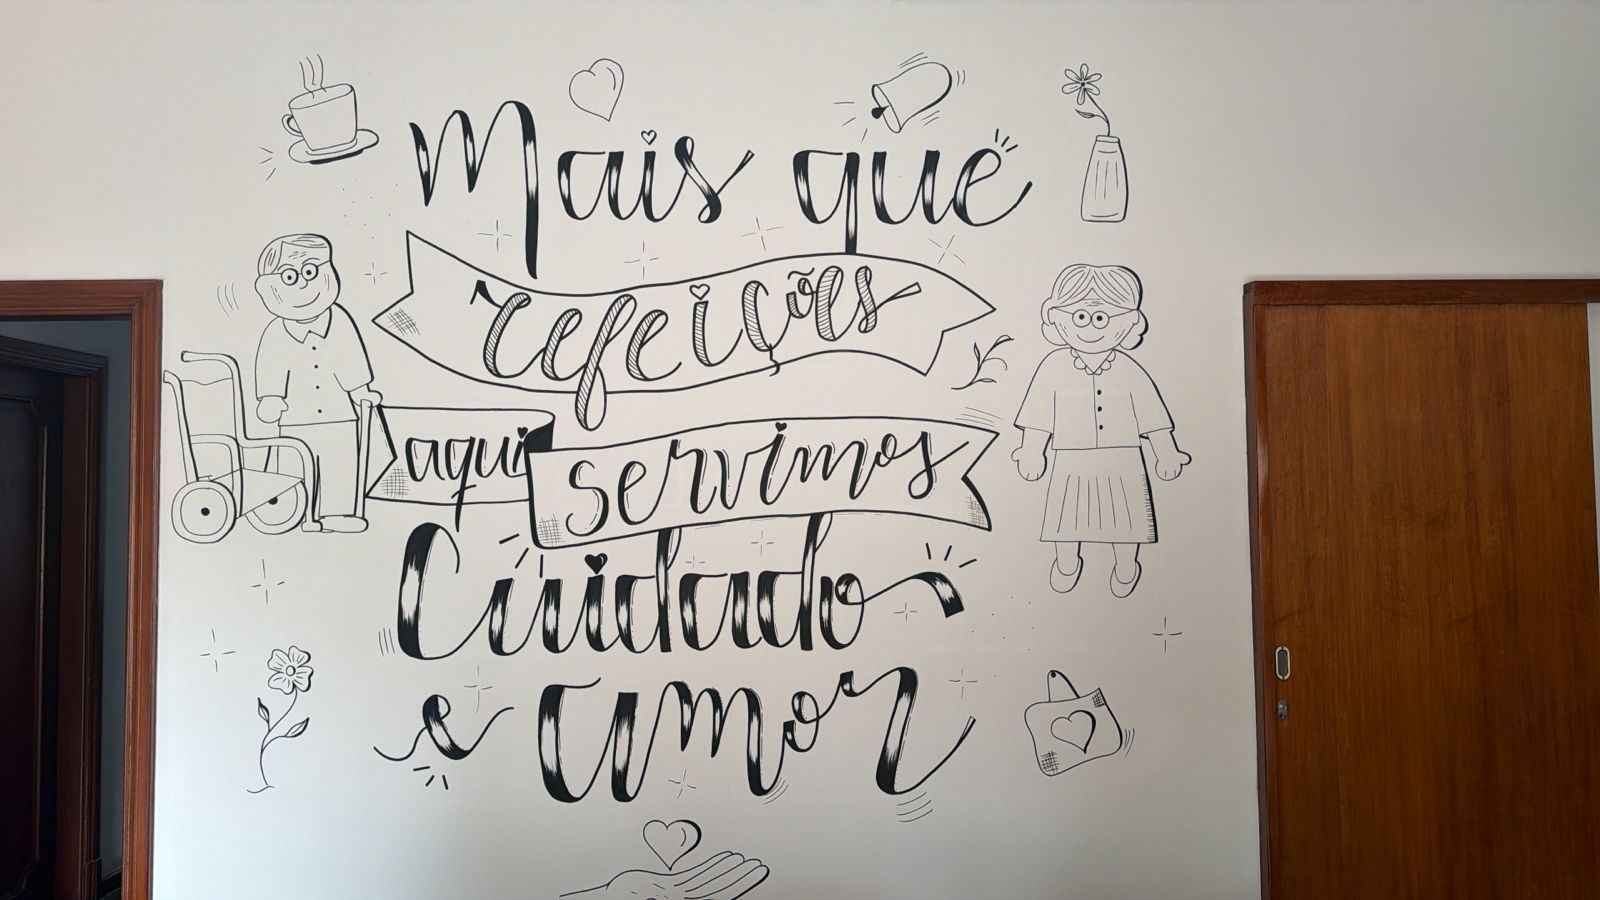 Mais que
refeições
aqui servimos
Cuidado
e amor